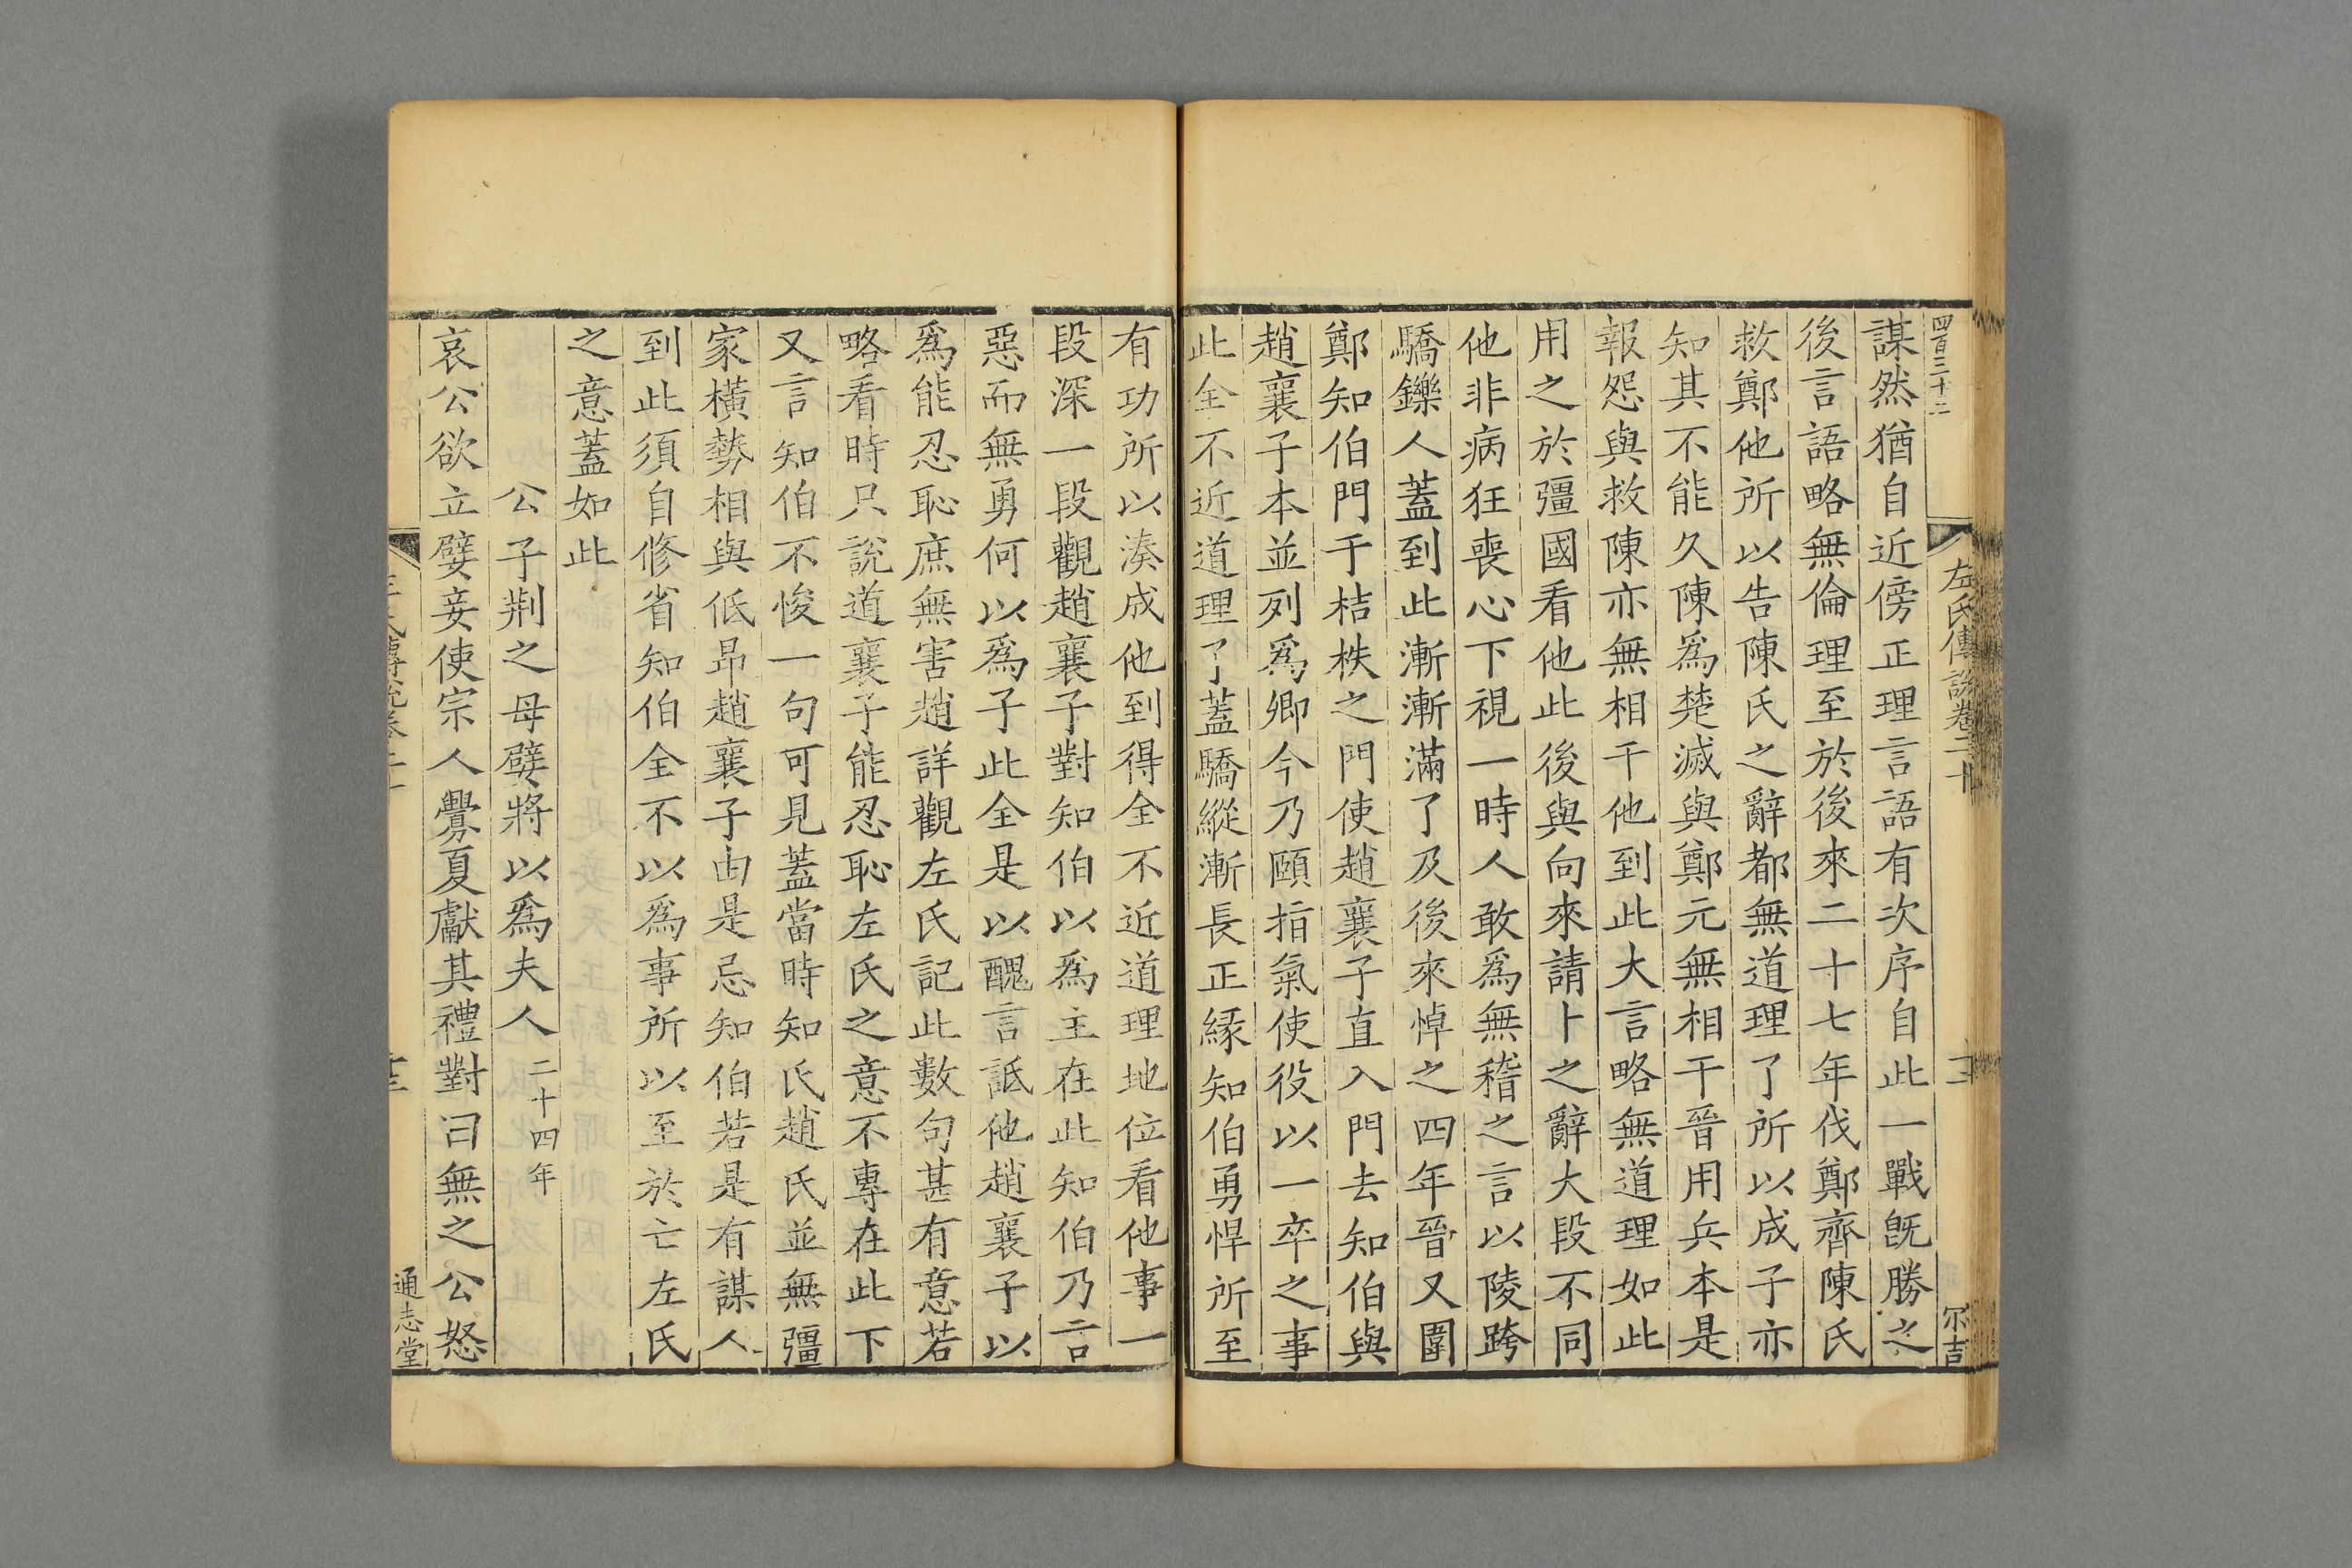 四百三十二
左氏傳說卷二十
尔吉
謀然猶自近傍正理言語有次序自此一戰旣勝之
後言語略無倫理至於後來二十七年伐鄭齊陳氏
救鄭他所以告陳氏之辭都無道理了所以成子亦
知其不能久陳爲楚滅與鄭元無相干晉用兵本是
報怨與救陳亦無相干他到此大言略無道理如此
用之於彊國看他此後與向來請卜之辭大段不同
他非病狂喪心下視一時人敢爲無稽之言以陵跨
驕鑠人蓋到此漸漸滿了及後來悼之四年晉又圍
鄭知伯門于桔柣之門使趙襄子直入門去知伯與
趙襄子本並列爲卿今乃頤指氣使役以一卒之事
此全不近道理了蓋驕縱漸長正緣知伯勇悍所至
有功所以湊成他到得全不近道理地位看他事一
段深一段觀趙襄子對知伯以爲主在此知伯乃言
惡而無勇何以爲子此全是以醜言詆他趙襄子以
爲能忍恥庶無害趙詳觀左氏記此數句甚有意若
略看時只說道襄子能忍恥左氏之意不專在此下
又言知伯不悛一句可見蓋當時知氏趙氏並無彊
家橫勢相與低昂趙襄子由是忌知伯若是有謀人
到此須自修省知伯全不以爲事所以至於亡左氏
之意蓋如此
公子荆之母嬖將以爲夫人二十四年
哀公欲立嬖妾使宗人釁夏獻其禮對曰無之公怒
通志堂